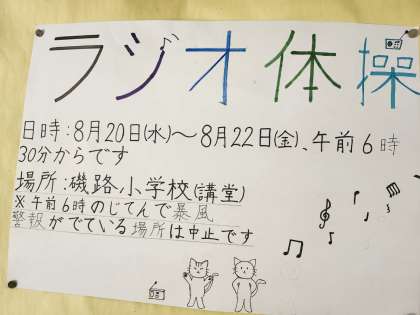 ラジオ体操
日時:8月20日(水)～8月22日(金)、午前6時
30分からです
場所:磯路小学校(講堂)
※午前6時のじてんで暴風
警報がでている場所は中止です